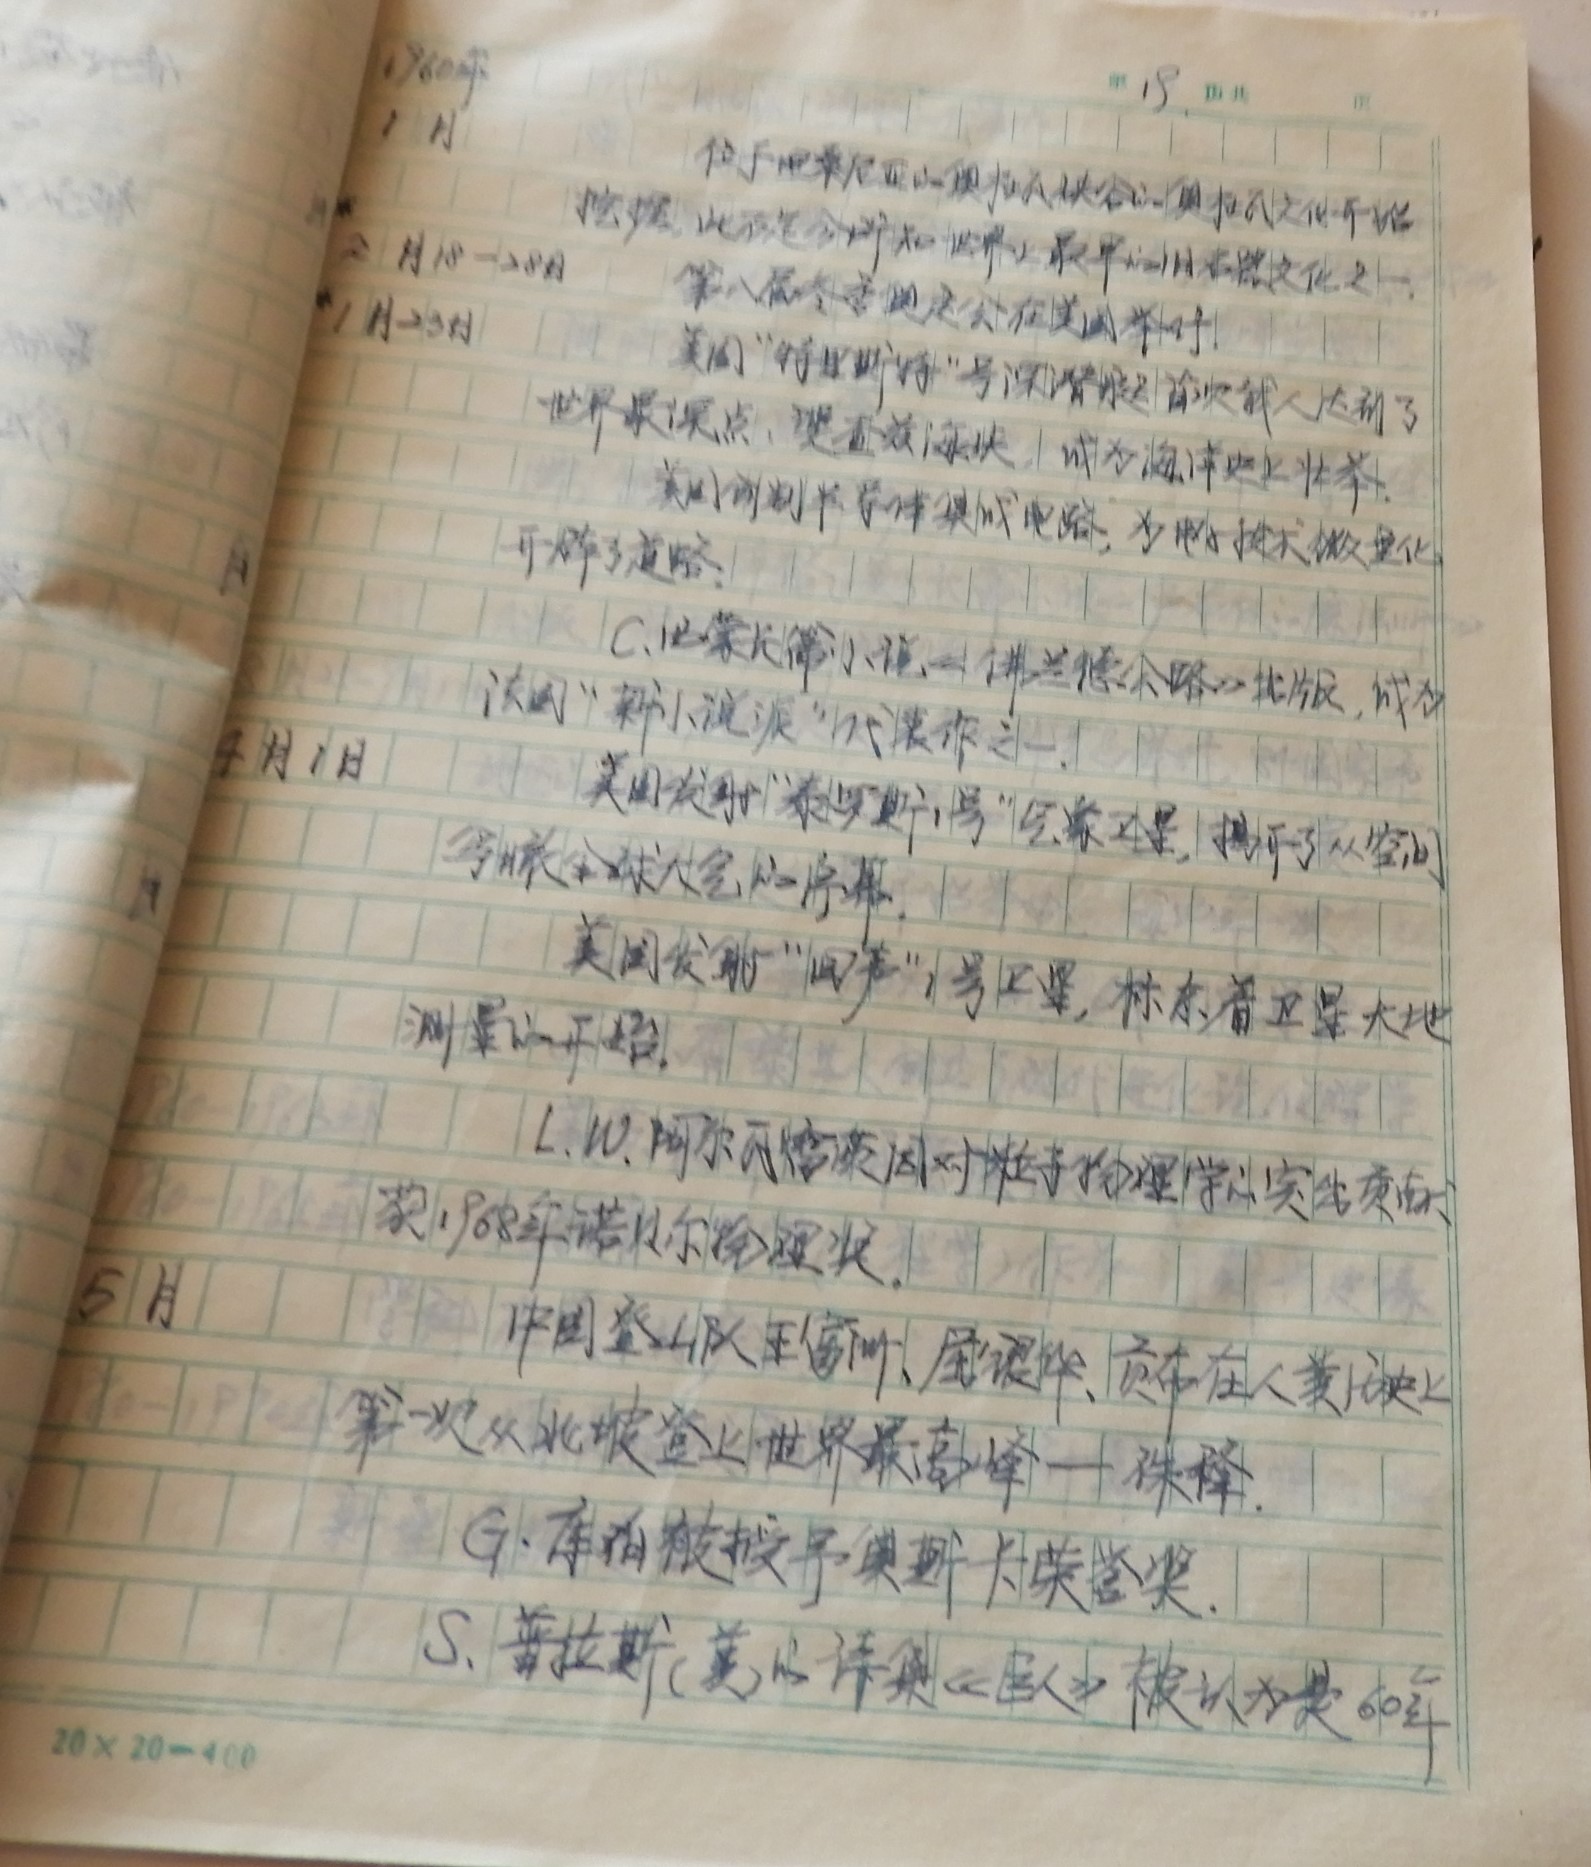 第19页共 页
1960年
1月
位于坦桑尼亚的奥杜瓦峡谷的奥杜瓦文化开始
挖掘,此乃迄今所知世界上最早的旧石器文化之一.
2月18-28日 第八届冬季奥运会在美国举行.
1月23日 美国"特里斯特"号深潜艇首次载人达到了
世界最深点,斐查兹海峡,成为海洋史上壮举.
美国研制半导体集成电路,为电子技术微型化
开辟了道路.
C.西蒙长篇小说《佛兰德公路》出版,成为
法国"新小说派"代表作之一.
4月1日 美国发射"泰罗斯1号"气象卫星,揭开了从空间
全球大气的序幕.
美国发射"回声"1号卫星,标志着卫星大地
测量的开始.
L.W.阿尔瓦雷茨因对粒子物理学的突出贡献
获1968年诺贝尔物理奖.
5月 中国登山队王富洲、屈银华、贡布在人类历史上
第一次从北坡登上世界最高峰一珠峰.
G.库柏被授予奥斯卡荣誉奖.
S.普拉斯(美)的诗集《巨人》被认为是60年
20×20=400